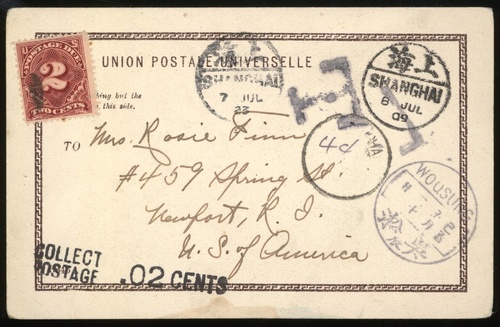 U S
POSTAGE DUE
2
TWO CENTS
UNION POSTALE UNIVERSELLE
海上
SHANGHAI
7 JUL
23
海上
SHANGHAI
8 JUL
09
T
thing but the
this side.
4d
TO
Mrs. Rosie Finn
#459 Spring St.
Newport, R. I.
U. S. of America
WOOSUNG
COLLECT
POSTAGE
.02 CENTS